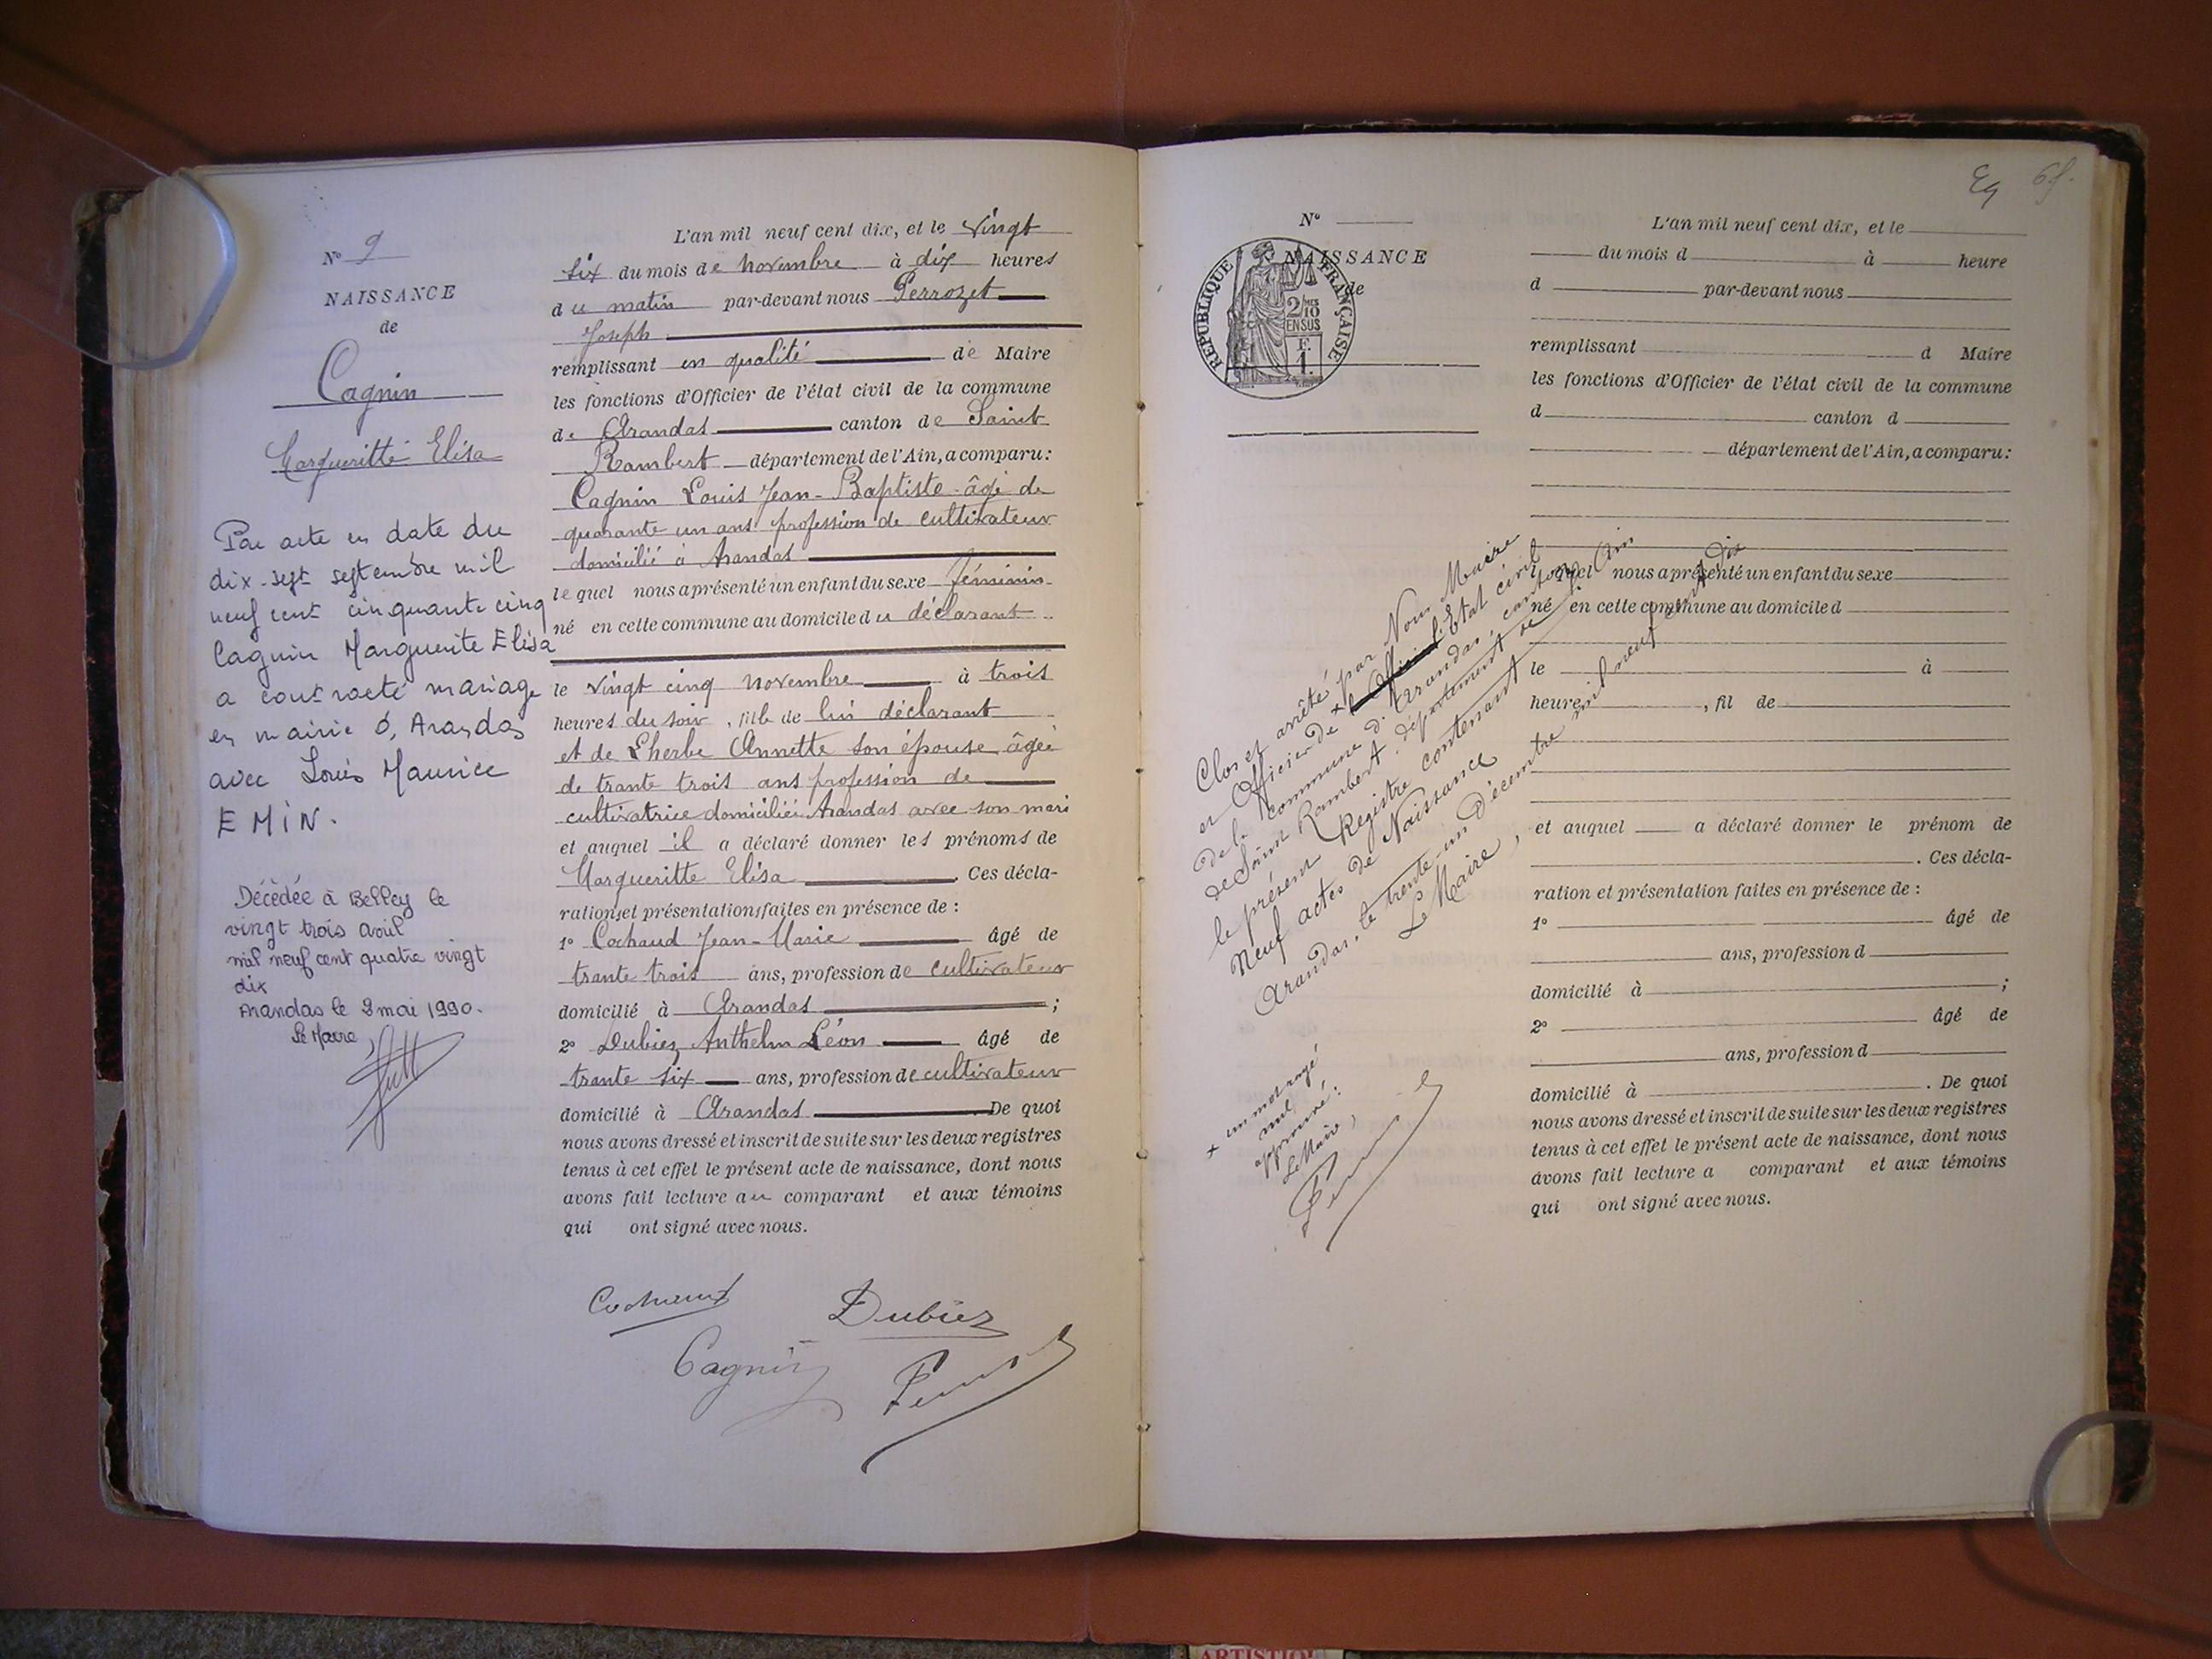 N° 9
NAISSANCE
de
Cagnin
Margueritte Elisa
Par acte en date du
dix-sept septembre mil
neuf cent cinquante cinq
Cagnin Marguerite Elisa
a contracté mariage
en mairie d'Arandas
avec Louis Maurice
EMIN.
Décédée à Belley le
vingt trois avril
mil neuf cent quatre vingt
dix
Arandas le 2 mai 1990.
Le Maire,
L'an mil neuf cent dix, et le vingt
six du mois de novembre à dix heures
du matin par-devant nous Perrozet
Joseph
remplissant en qualité de Maire
les fonctions d'Officier de l'état civil de la commune
de Arandas canton de Saint
Rambert département de l'Ain, a comparu :
Cagnin Louis Jean-Baptiste âgé de
quarante un ans profession de cultivateur
domicilié à Arandas
lequel nous a présenté un enfant du sexe féminin
né en cette commune au domicile du déclarant
le vingt cinq novembre à trois
heures du soir, fille de lui déclarant
et de Lherbe Annette son épouse âgée
de trante trois ans profession de
cultivatrice domiciliée Arandas avec son mari
et auquel il a déclaré donner les prénoms de
Margueritte Elisa. Ces décla-
rations et présentations faites en présence de :
1° Cochaud Jean-Marie âgé de
trante trois ans, profession de cultivateur
domicilié à Arandas ;
2° Dubiez Anthelm Léon âgé de
trante six ans, profession de cultivateur
domicilié à Arandas De quoi
nous avons dressé et inscrit de suite sur les deux registres
tenus à cet effet le présent acte de naissance, dont nous
avons fait lecture au comparant et aux témoins
qui ont signé avec nous.
Cochaud Dubiez
Cagnin
N°
NAISSANCE
de
REPUBLIQUE FRANÇAISE
2/10
EN SUS
F.
1.
Clos et arrêté par Nous Maire
et Officier de l'Etat civil
de la commune d'Arandas, canton
de Saint Rambert, département de l'Ain
le présent Registre contenant
Neuf actes de Naissance
Arandas, le trente-un décembre mil neuf cent dix
Le Maire,
+ un mot rayé
nul
approuvé :
Le Maire,
69.
L'an mil neuf cent dix, et le
du mois d à heure
d par-devant nous
remplissant d Maire
les fonctions d'Officier de l'état civil de la commune
d canton d
département de l'Ain, a comparu :
l quel nous a présenté un enfant du sexe
né en cette commune au domicile d
le à
heure , fil de
et auquel a déclaré donner le prénom de
. Ces décla-
ration et présentation faites en présence de :
1° âgé de
ans, profession d
domicilié à ;
2° âgé de
ans, profession d
domicilié à . De quoi
nous avons dressé et inscrit de suite sur les deux registres
tenus à cet effet le présent acte de naissance, dont nous
avons fait lecture a comparant et aux témoins
qui ont signé avec nous.